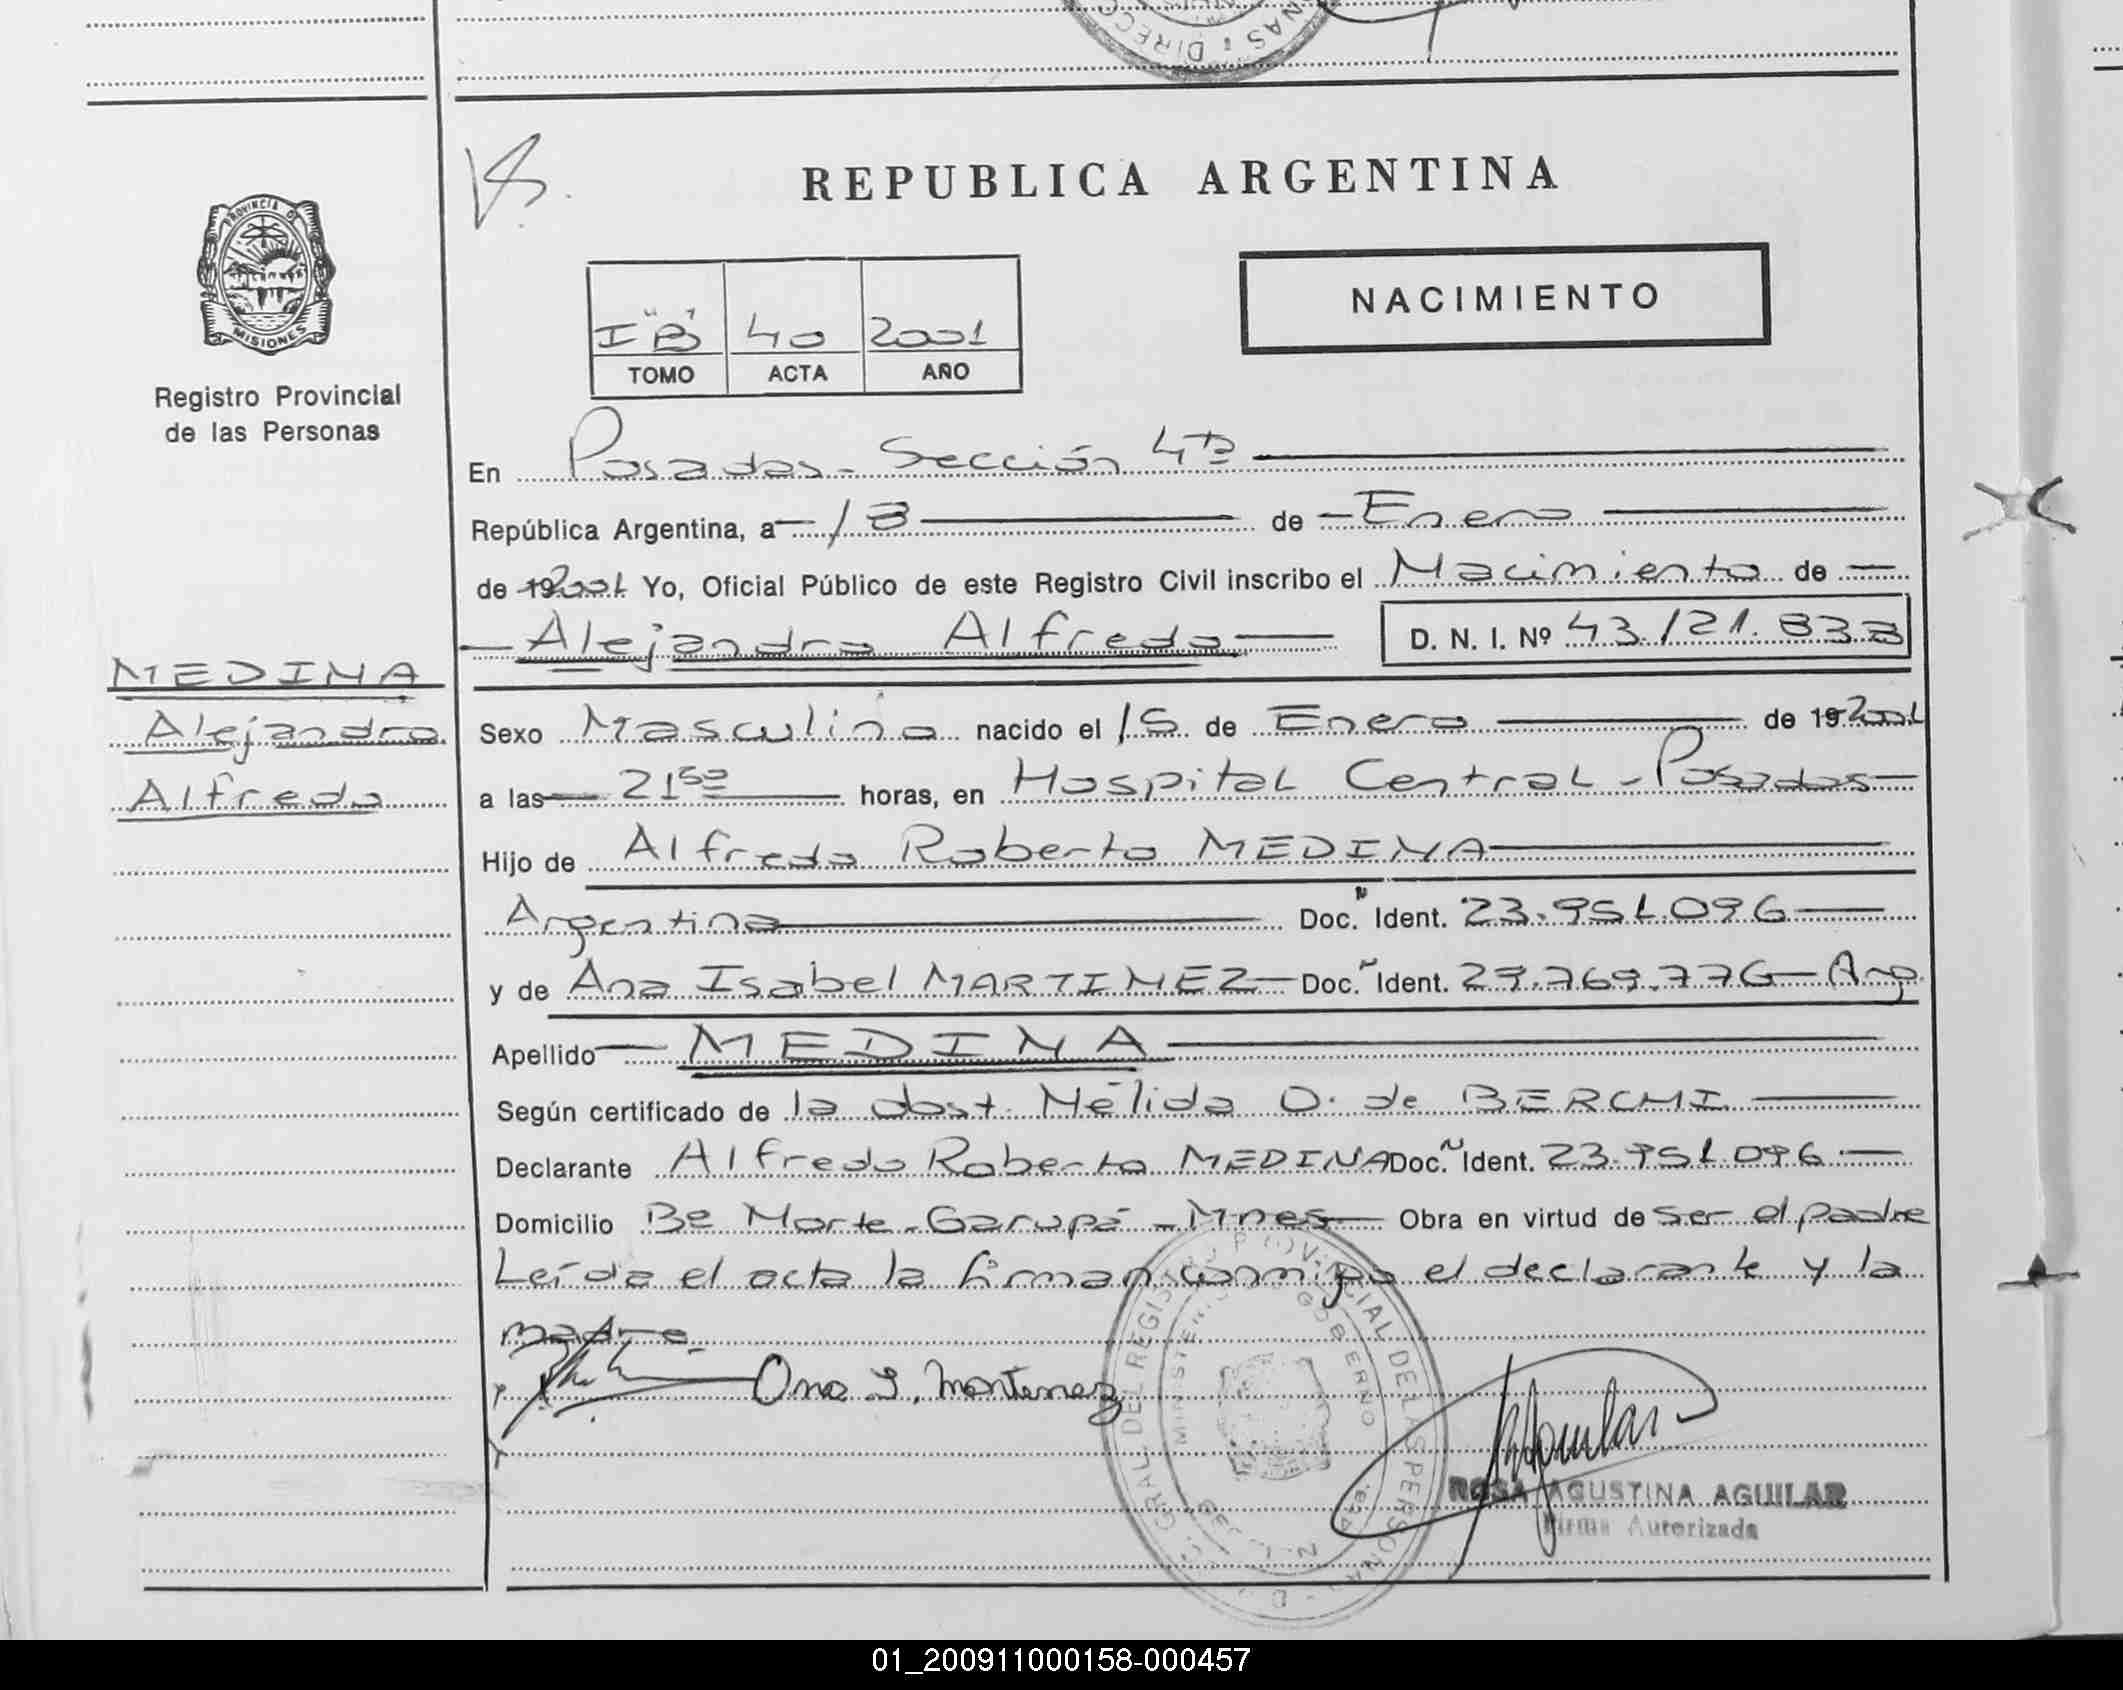 REPUBLICA ARGENTINA
PROVINCIA DE
MISIONES
Registro Provincial
de las Personas
I "B" 40 2001
TOMO ACTA AÑO
NACIMIENTO
En Posadas - Sección 4ta
República Argentina, a 18 de Enero
de 192001 Yo, Oficial Público de este Registro Civil inscribo el Nacimiento de
Alejandro Alfredo D. N. I. Nº 43.121.833
MEDINA
Alejandro
Alfredo
Sexo Masculino nacido el 15 de Enero de 192001
a las 21 50 horas, en Hospital Central - Posadas
Hijo de Alfredo Roberto MEDINA
Argentina Doc. Ident. 23.951.096
y de Ana Isabel MARTINEZ Doc. Ident. 27.769.776 Arg.
Apellido MEDINA
Según certificado de la obst. Nélida O. de BERCHI
Declarante Alfredo Roberto MEDINA Doc. Ident. 23.951.096
Domicilio Be Norte - Garupá - Mnes Obra en virtud de ser el padre
Leída el acta la firman conmigo el declarante y la
madre
Ana I. Martinez
ROSA AGUSTINA AGUILAR
Firma Autorizada
01_200911000158-000457